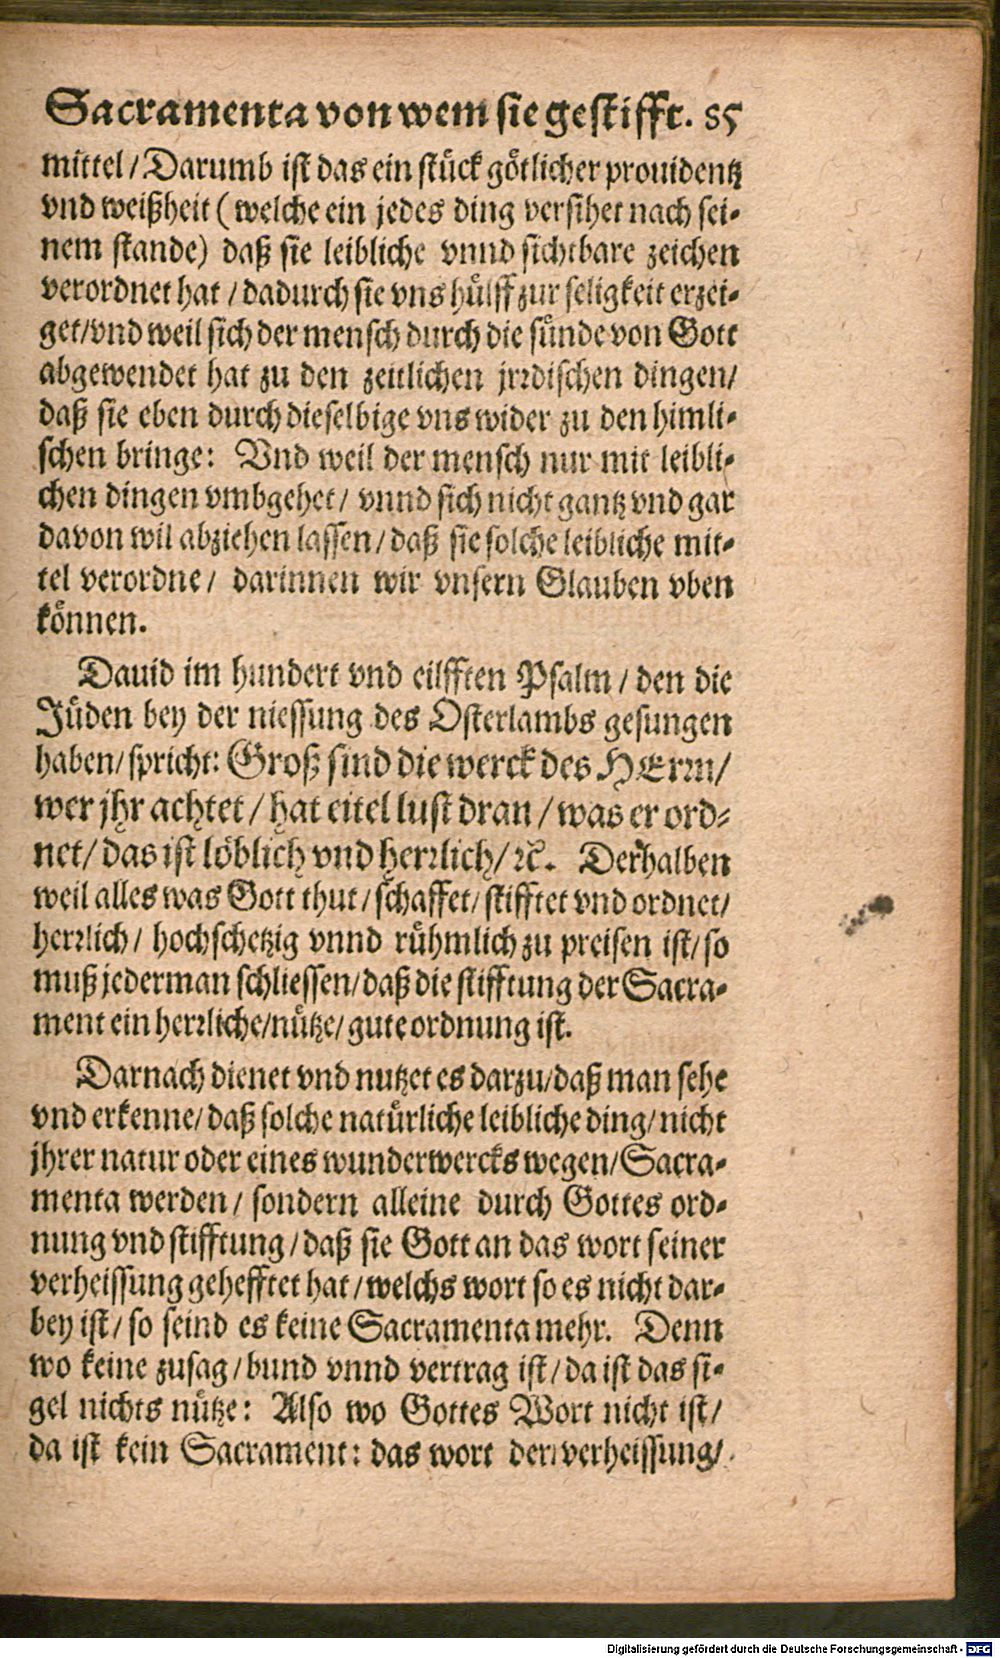 Sacramenta von wem sie gestifft. 85
mittel / Darumb ist das ein stück götlicher prouidentz
vnd weißheit ( welche ein jedes ding versihet nach sei-
nem stande) daß sie leibliche vnnd sichtbare zeichen
verordnet hat / dadurch sie vns hülff zur seligkeit erzei-
get/vnd weil sich der mensch durch die sünde von Gott
abgewendet hat zu den zeitlichen jrrdischen dingen/
daß sie eben durch dieselbige vns wider zu den himli-
schen bringe: Vnd weil der mensch nur mit leibli-
chen dingen vmbgehet/ vnnd sich nicht gantz vnd gar
davon wil abziehen lassen/daß sie solche leibliche mit-
tel verordne/ darinnen wir vnsern Glauben vben
können.
Dauid im hundert vnd eilfften Psalm / den die
Jüden bey der niessung des Osterlambs gesungen
haben/spricht: Groß sind die werck des HErrn/
wer jhr achtet / hat eitel lust dran / was er ord-
net/ das ist löblich vnd herrlich/ ꝛc. Derhalben
weil alles was Gott thut/schaffet/stifftet vnd ordnet/
herrlich/ hochschetzig vnnd rühmlich zu preisen ist/so
muß jederman schliessen/daß die stifftung der Sacra-
ment ein herrliche/nütze/gute ordnung ist.
Darnach dienet vnd nutzet es darzu/daß man sehe
vnd erkenne/daß solche natürliche leibliche ding/nicht
jhrer natur oder eines wunderwercks wegen/Sacra-
menta werden/ sondern alleine durch Gottes ord-
nung vnd stifftung/daß sie Gott an das wort seiner
verheissung gehefftet hat/welchs wort so es nicht dar-
bey ist/so seind es keine Sacramenta mehr. Denn
wo keine zusag/bund vnnd vertrag ist/da ist das si-
gel nichts nütze: Also wo Gottes Wort nicht ist/
da ist kein Sacrament: das wort der verheissung/
Digitalisierung gefördert durch die Deutsche Forschungsgemeinschaft - DFG